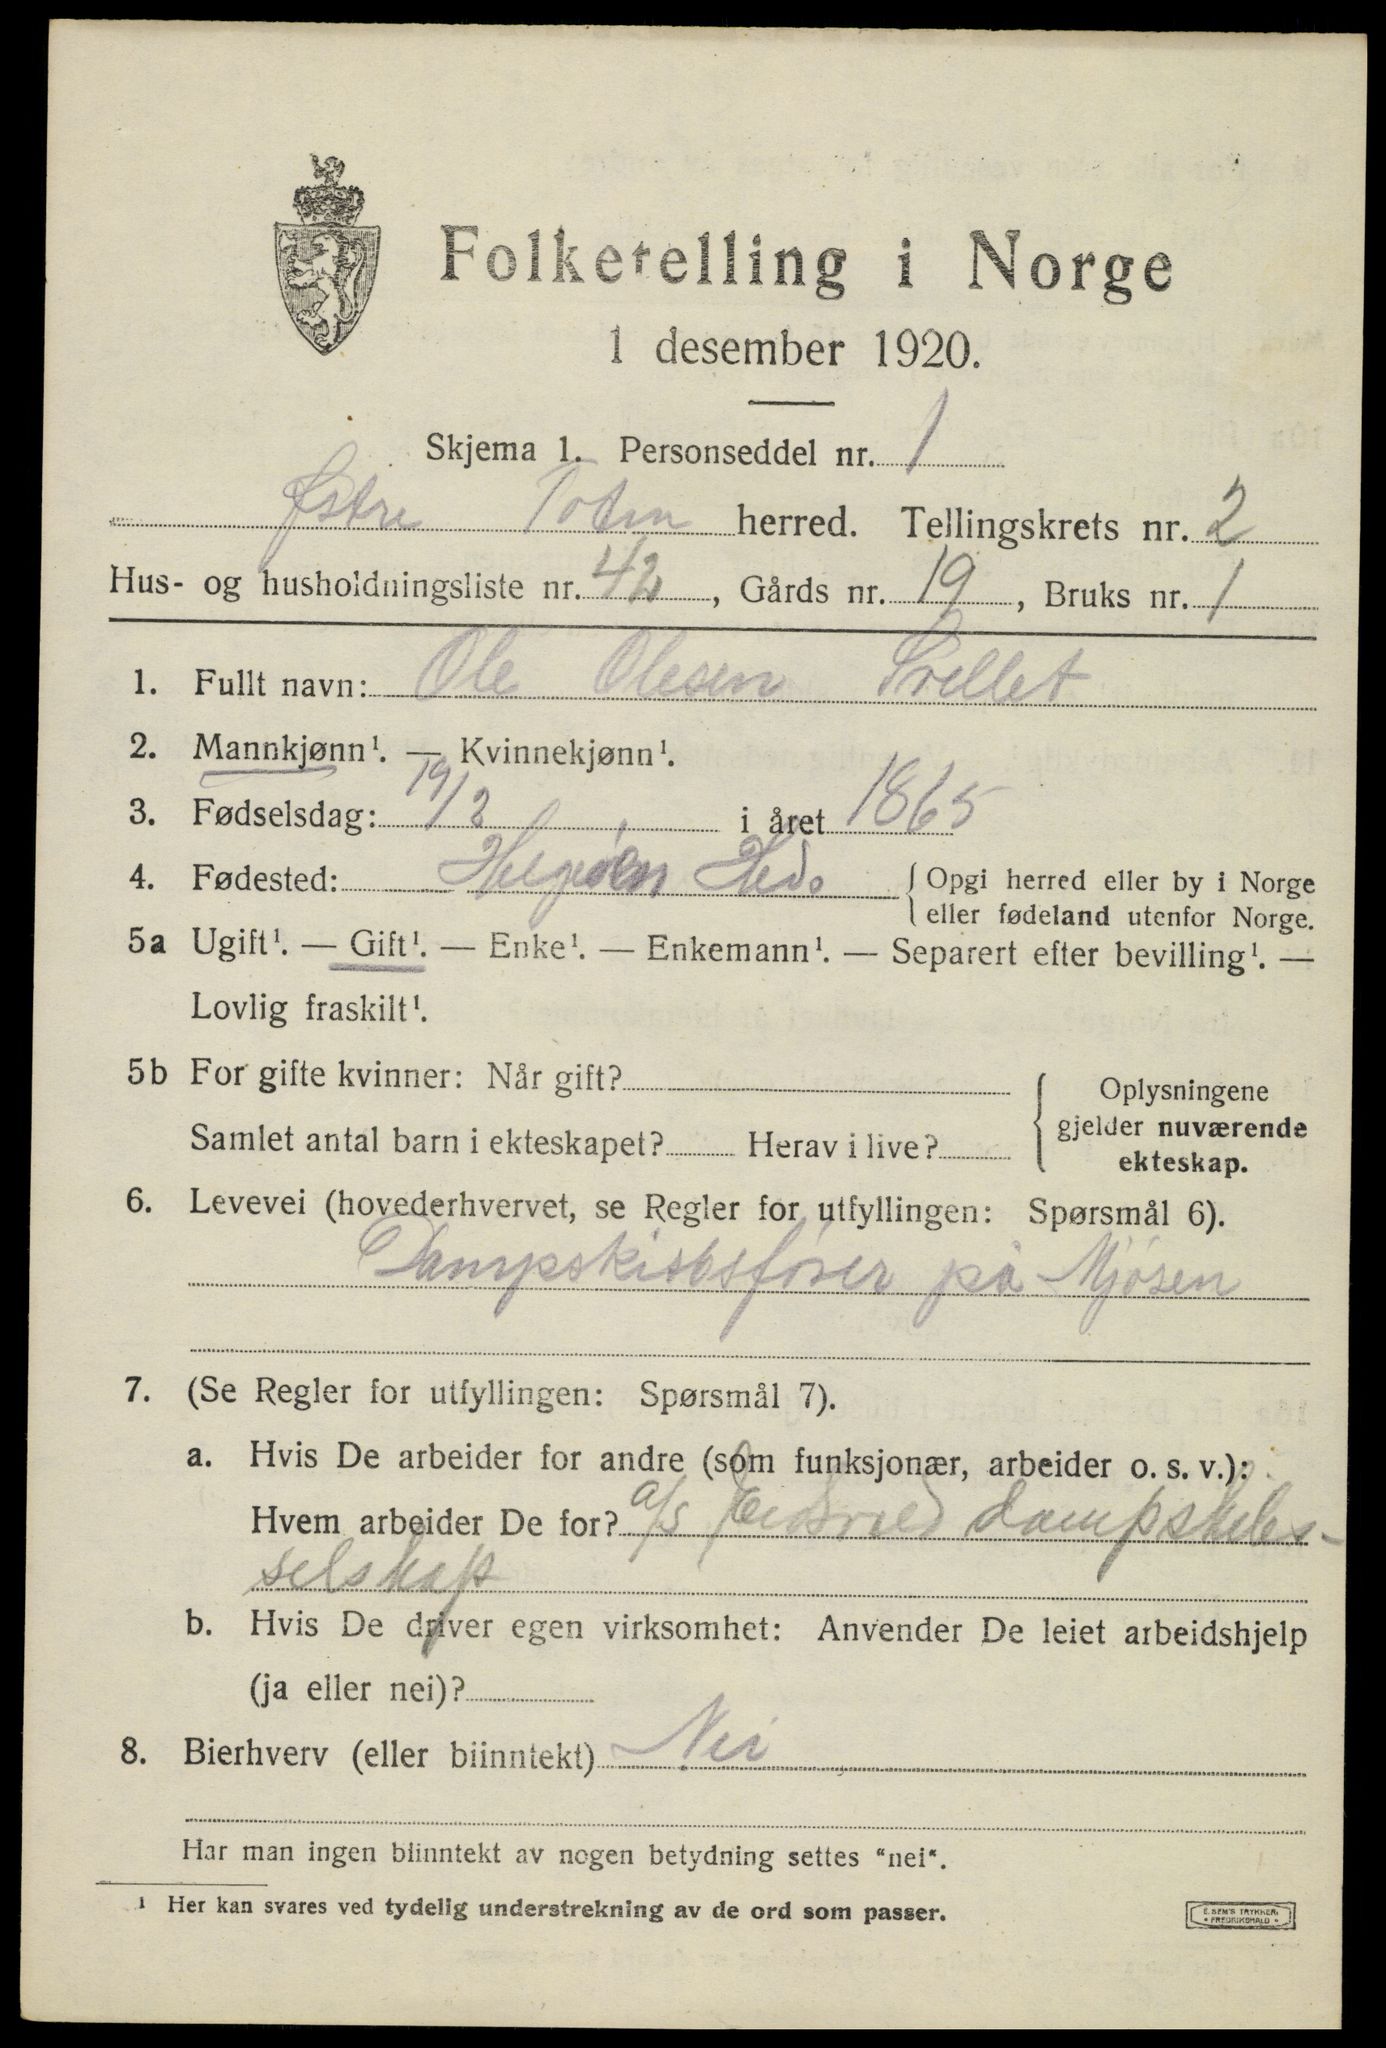 Folketelling i Norge
1 desember 1920.
Skjema 1. Personseddel nr. 1
Østre Toten herred. Tellingskrets nr. 2
Hus- og husholdningsliste nr. 42, Gårds nr. 19, Bruks nr. 1
1. Fullt navn: Ole Olesen
2. Mannkjønn¹. — Kvinnekjønn¹.
3. Fødselsdag: 19/2 i året 1865
4. Fødested: Helgøen Hed. { Opgi herred eller by i Norge
eller fødeland utenfor Norge.
5a Ugift¹. — Gift¹. — Enke¹. — Enkemann¹. — Separert efter bevilling¹. —
Lovlig fraskilt¹.
5b For gifte kvinner: Når gift?
Samlet antal barn i ekteskapet? Herav i live?
{ Oplysningene
gjelder nuværende
ekteskap.
6. Levevei (hovederhvervet, se Regler for utfyllingen: Spørsmål 6).
Dampskibsfører på Mjøsen
7. (Se Regler for utfyllingen: Spørsmål 7).
a. Hvis De arbeider for andre (som funksjonær, arbeider o. s. v.):
Hvem arbeider De for? a/s Eidsvold dampskibs-
selskap
b. Hvis De driver egen virksomhet: Anvender De leiet arbeidshjelp
(ja eller nei)?
8. Bierhverv (eller biinntekt) Nei
Har man ingen biinntekt av nogen betydning settes "nei".
¹ Her kan svares ved tydelig understrekning av de ord som passer.
E. SEM'S TRYKKERI
• FREDRIKSHALD •